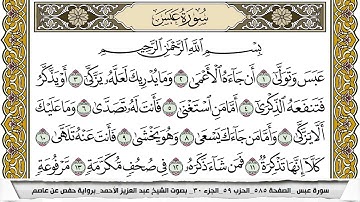 سُورَةُ عَبَسَ
بِسْمِ اللَّهِ الرَّحْمَٰنِ الرَّحِيمِ
عَبَسَ وَتَوَلَّىٰ ١ أَن جَاءَهُ الْأَعْمَىٰ ٢ وَمَا يُدْرِيكَ لَعَلَّهُ يَزَّكَّىٰ ٣ أَوْ يَذَّكَّرُ
فَتَنفَعَهُ الذِّكْرَىٰ ٤ أَمَّا مَنِ اسْتَغْنَىٰ ٥ فَأَنتَ لَهُ تَصَدَّىٰ ٦ وَمَا عَلَيْكَ
أَلَّا يَزَّكَّىٰ ٧ وَأَمَّا مَن جَاءَكَ يَسْعَىٰ ٨ وَهُوَ يَخْشَىٰ ٩ فَأَنتَ عَنْهُ تَلَهَّىٰ ١٠
كَلَّا إِنَّهَا تَذْكِرَةٌ ١١ فَمَن شَاءَ ذَكَرَهُ ١٢ فِي صُحُفٍ مُّكَرَّمَةٍ ١٣ مَّرْفُوعَةٍ
سورة عبس _ الصفحة ٥٨٥ _ الحزب ٥٩ _ الجزء ٣٠ _ بصوت الشيخ عبد العزيز الأحمد _ برواية حفص عن عاصم